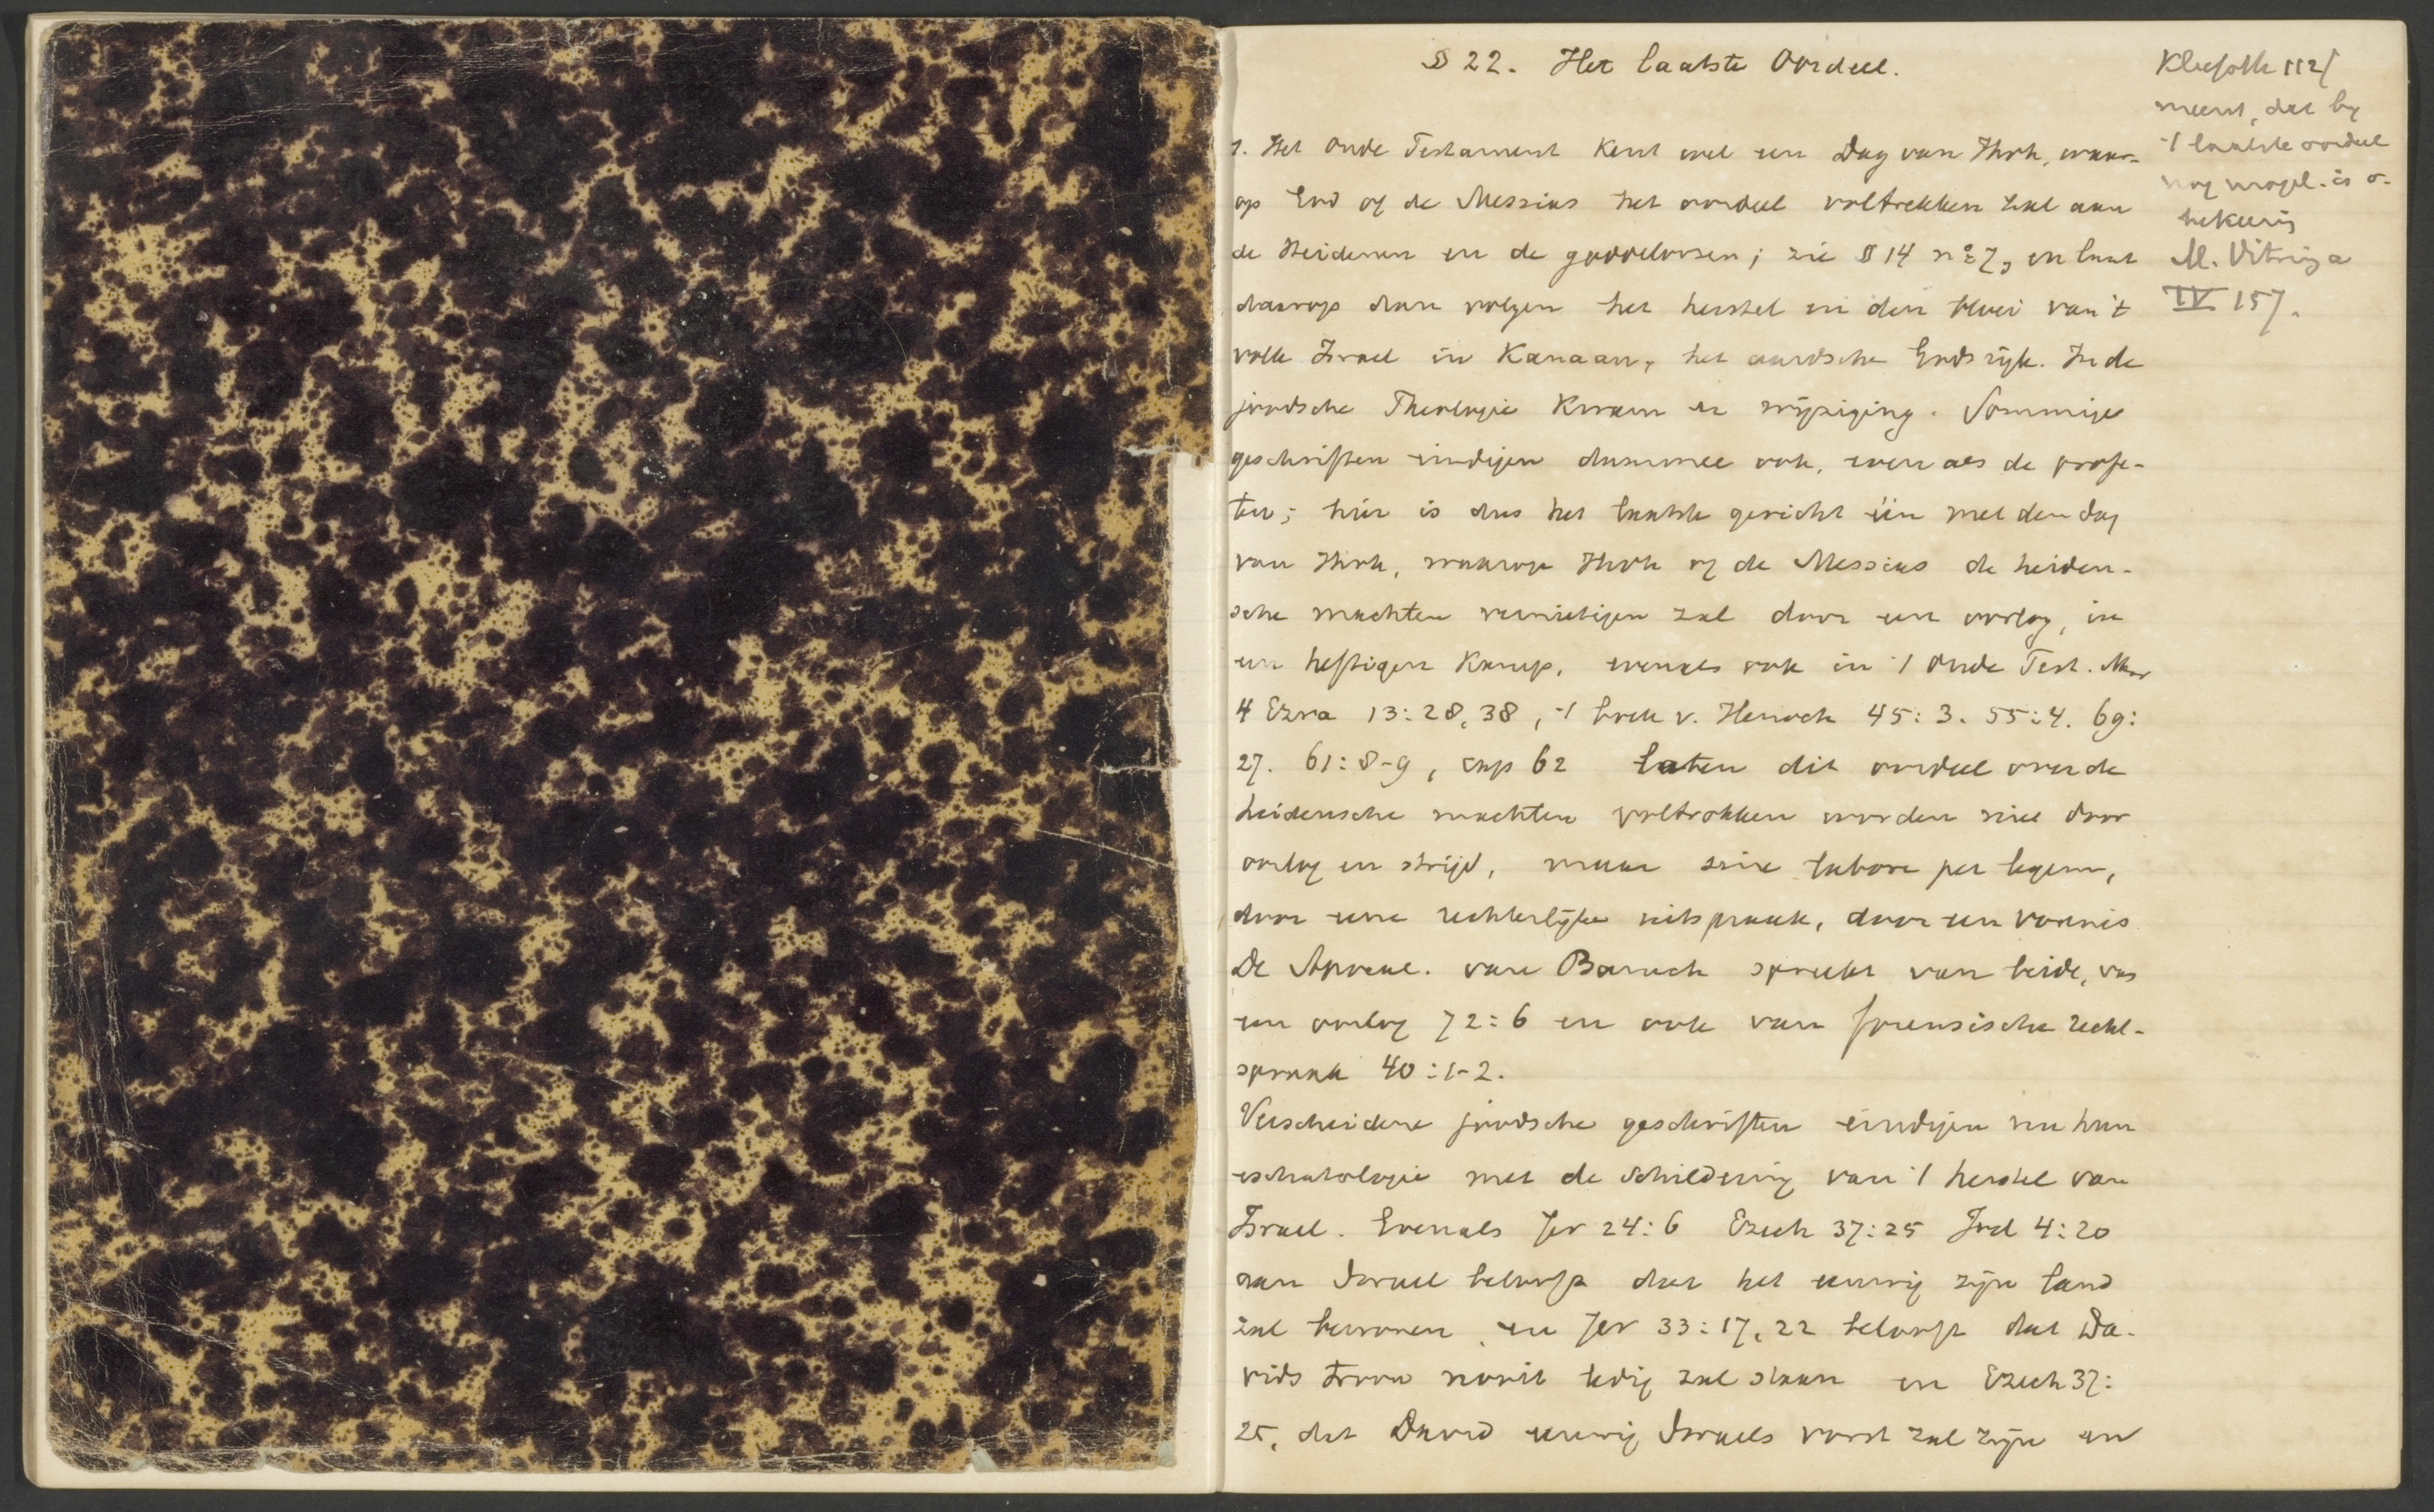 § 22. Het laatste Oordeel.
1. Het Oude Testament kent wel een Dag van Jhvh, waar-
op God of de Messias het oordeel voltrekken zal aan
de Heidenen en de goddeloozen; zie § 14 no 7, en laat
daarop dan volgen het herstel en den bloei van 't
volk Israel in Kanaan, het aardsche Godsrijk. In de
joodsche Theologie kwam er wijziging. Sommige
geschriften eindigen daarmee ook, even als de profe-
ten; hier is dus het laatste gericht één met den dag
van Jhvh, waarop Jhvh of de Messias de heiden-
sche machten vernietigen zal door een oorlog, in
een heftigen kamp, evenals ook in 't Oude Test. Maar
4 Ezra 13:28, 38, 't boek v. Henoch 45:3. 55:4. 69:
27. 61:8-9, cap 62 laten dit oordeel over de
heidensche machten voltrokken worden niet door
oorlog en strijd, maar sine labore per legem,
door eene rechterlijke uitspraak, door een vonnis
De Apocal. van Baruch spreekt van beide, van
een oorlog 72:6 en ook van forensische recht-
spraak 40:1-2.
Verscheidene joodsche geschriften eindigen nu hun
eschatologie met de schildering van 't herstel van
Israel. Evenals Jer 24:6 Ezech 37:25 Joel 4:20
aan Israel belooft dat het eeuwig zijn land
zal bewonen, en Jer 33:17, 22 belooft dat Da-
vids troon nooit ledig zal staan en Ezech 37:
25, dat David eeuwig Israels vorst zal zijn en
Kliefoth 112/
meent, dat by
't laatste oordeel
nog mogel. is o.
bekeering
M. Vitringa
IV 157.